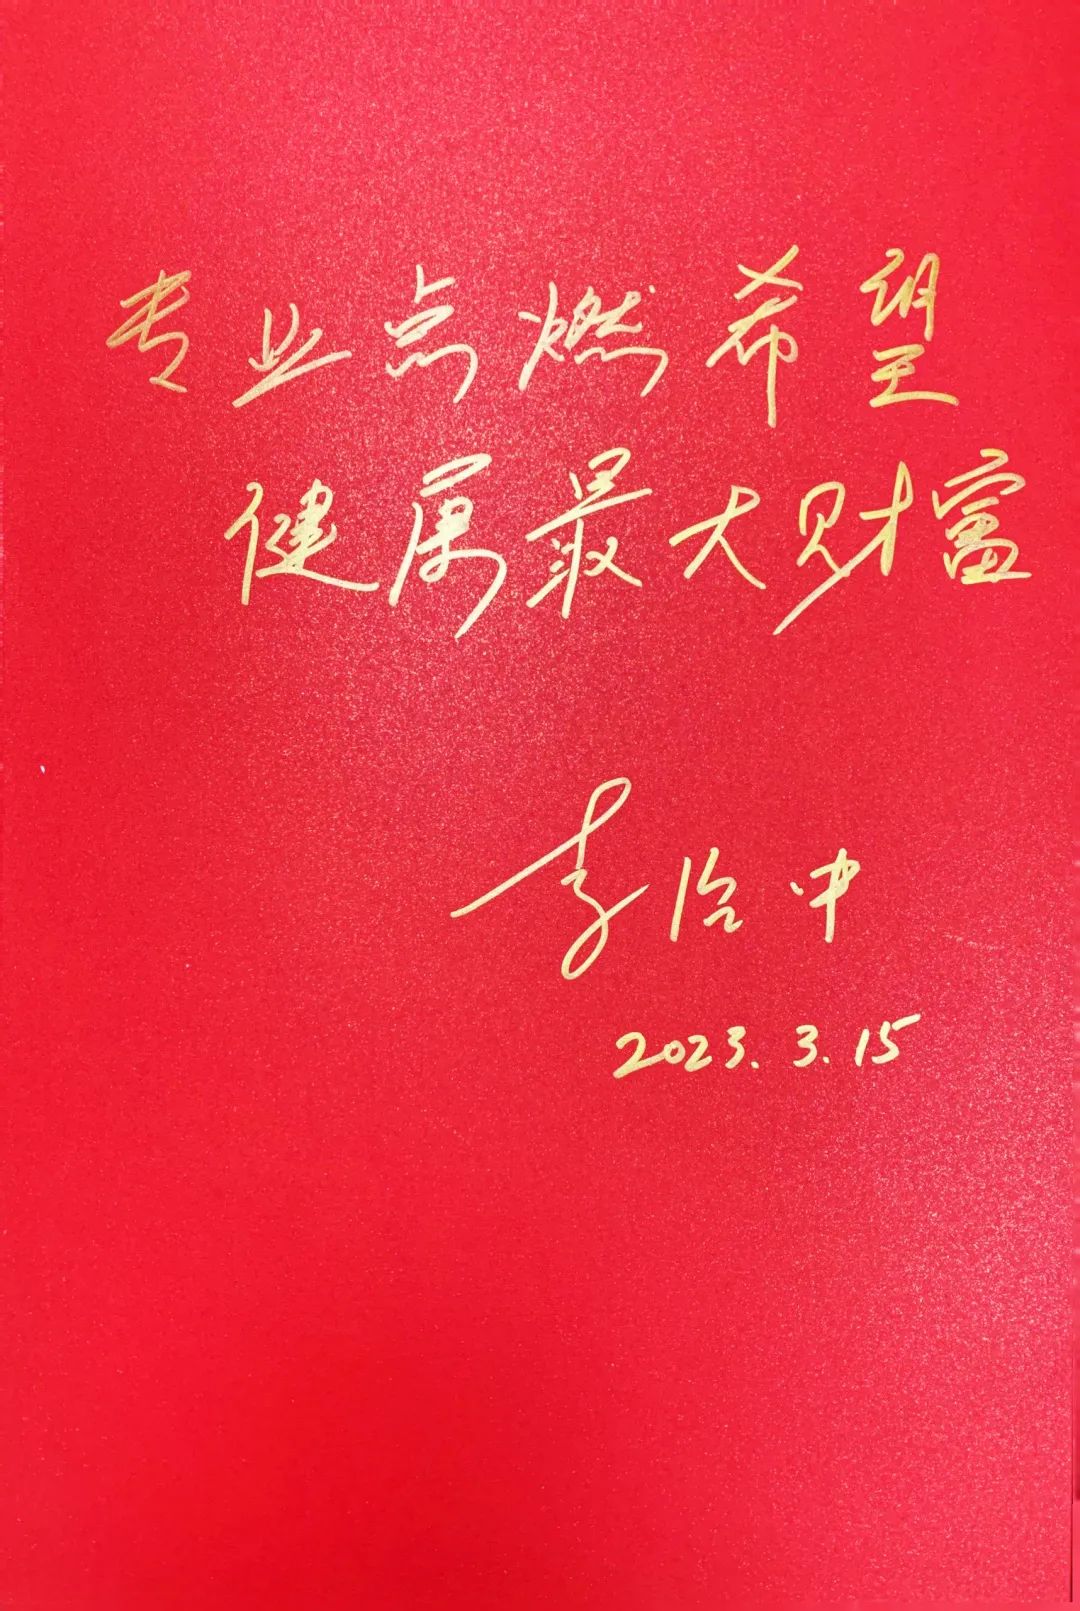 专业点燃希望
健属最大财富
李治中
2023.3.15